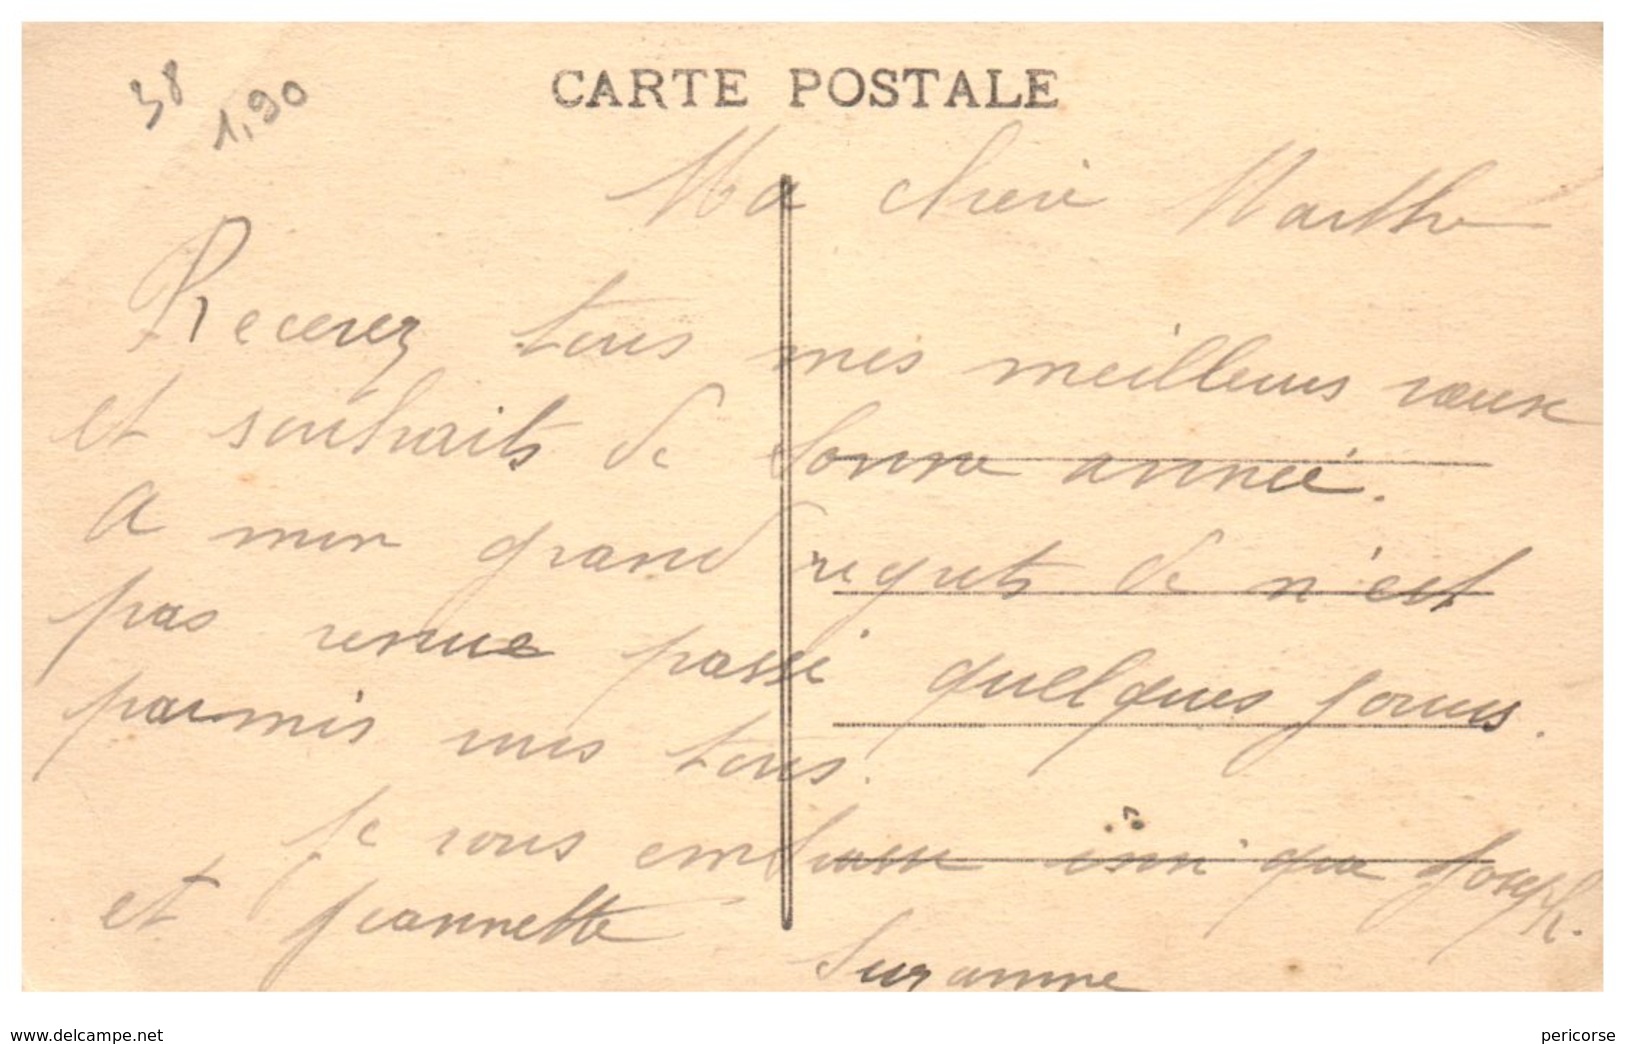 38
1,90
CARTE POSTALE
Ma chère Marthe
Recevez tous mes meilleurs voeux
et souhaits de bonne année.
A mon grand regrets de n'est
pas venue passé quelques jours.
parmis vous tous.
je vous embrasse insi que Joseph.
et jeannette
Suzanne
www.delcampe.net
pericorse